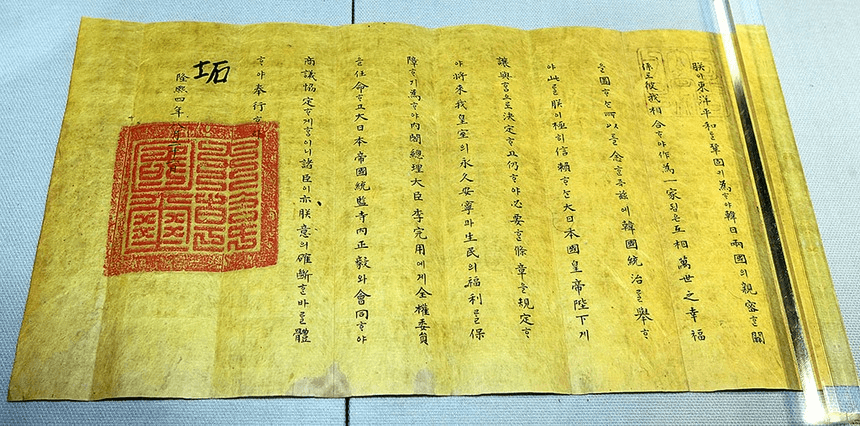 朕이東洋平和를鞏固키爲ᄒᆞ야韓日兩國의親密ᄒᆞᆫ關
係로彼我相合ᄒᆞ야作爲一家됨은互相萬世之幸福
을圖ᄒᆞᄂᆞᆫ所以를念ᄒᆞᆫ즉玆에韓國統治를擧ᄒᆞ
야此를朕이極히信賴ᄒᆞᄂᆞᆫ大日本國皇帝陛下게
讓與ᄒᆞᆷ으로決定ᄒᆞ고仍ᄒᆞ야必要ᄒᆞᆫ條章을規定ᄒᆞ
야將來我皇室의永久安寧과生民의福利를保
障ᄒᆞ기爲ᄒᆞ야內閣總理大臣李完用에게全權委員
을任命ᄒᆞ고大日本帝國統監寺內正毅와會同ᄒᆞ야
商議協定ᄒᆞ게ᄒᆞ이니諸臣이亦朕意의確斷ᄒᆞᆫ바를體
ᄒᆞ야奉行ᄒᆞ라
坧
隆熙四年